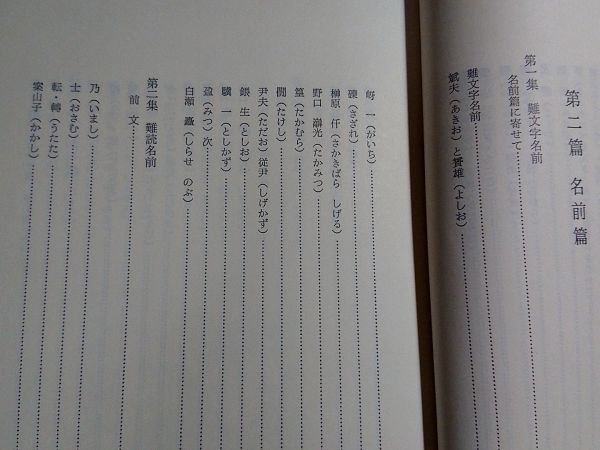 第二篇 名前篇
第一集 難文字名前
名前篇に寄せて
難文字名前
斌夫（あきお）と賢雄（よしお）
岈一（がいち）
礫（さざれ）
榊原 仟（さかきばら しげる）
野口 （たかみつ）
篁（たかむら）
（たけし）
尹夫（ただお）従尹（しげかず）
銀生（としお）
驥一（としかず）
（みつ）次
白瀬 矗（しらせ のぶ）
第二集 難読名前
前文
乃（いまし）
士（おさむ）
転・轉（うたた）
案山子（かかし）